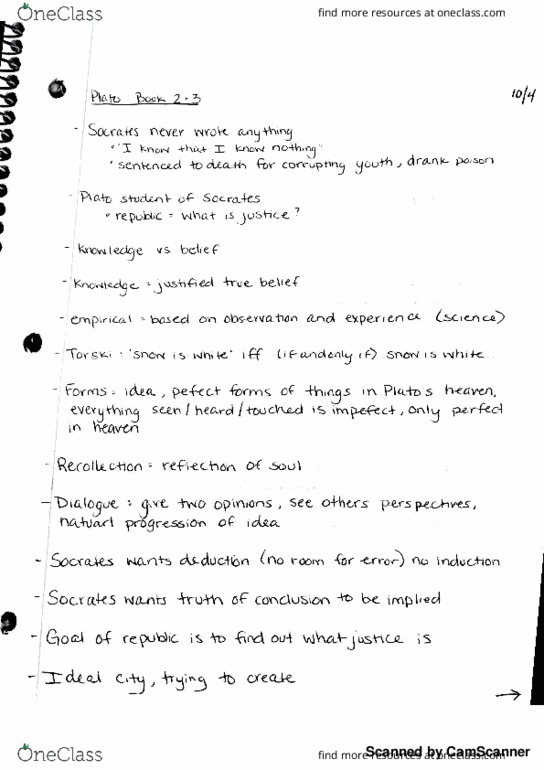 OneClass
find more resources at oneclass.com
Plato Book 2-3
10/4
- Socrates never wrote anything
• "I know that I know nothing"
• sentenced to death for corrupting youth, drank poison
- Plato student of Socrates
• republic = what is justice?
- Knowledge vs belief
- Knowledge = justified true belief
- empirical = based on observation and experience (science)
- Torski : 'snow is white' iff (if and only if) snow is white
- Forms = idea, pefect forms of things in Plato's heaven,
everything seen/heard/touched is impefect, only perfect
in heaven
- Recollection = reflection of soul
- Dialogue : give two opinions, see others perspectives,
natuarl progression of idea
- Socrates wants deduction (no room for error) no induction
- Socrates wants truth of conclusion to be implied
- Goal of republic is to find out what justice is
- Ideal city, trying to create
→
OneClass
find more resources at oneclass.com
Scanned by CamScanner